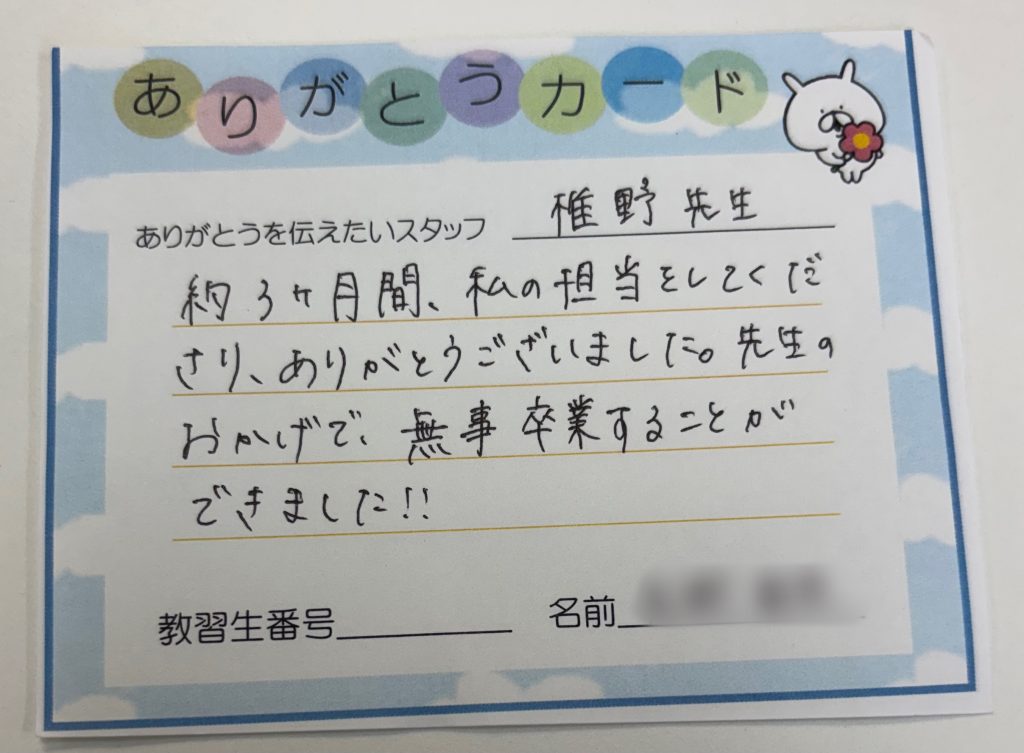 ありがとうカード
ありがとうを伝えたいスタッフ 椎野先生
約3ヶ月間、私の担当をしてくだ
さり、ありがとうございました。先生の
おかげで、無事卒業することが
できました!!
教習生番号 名前